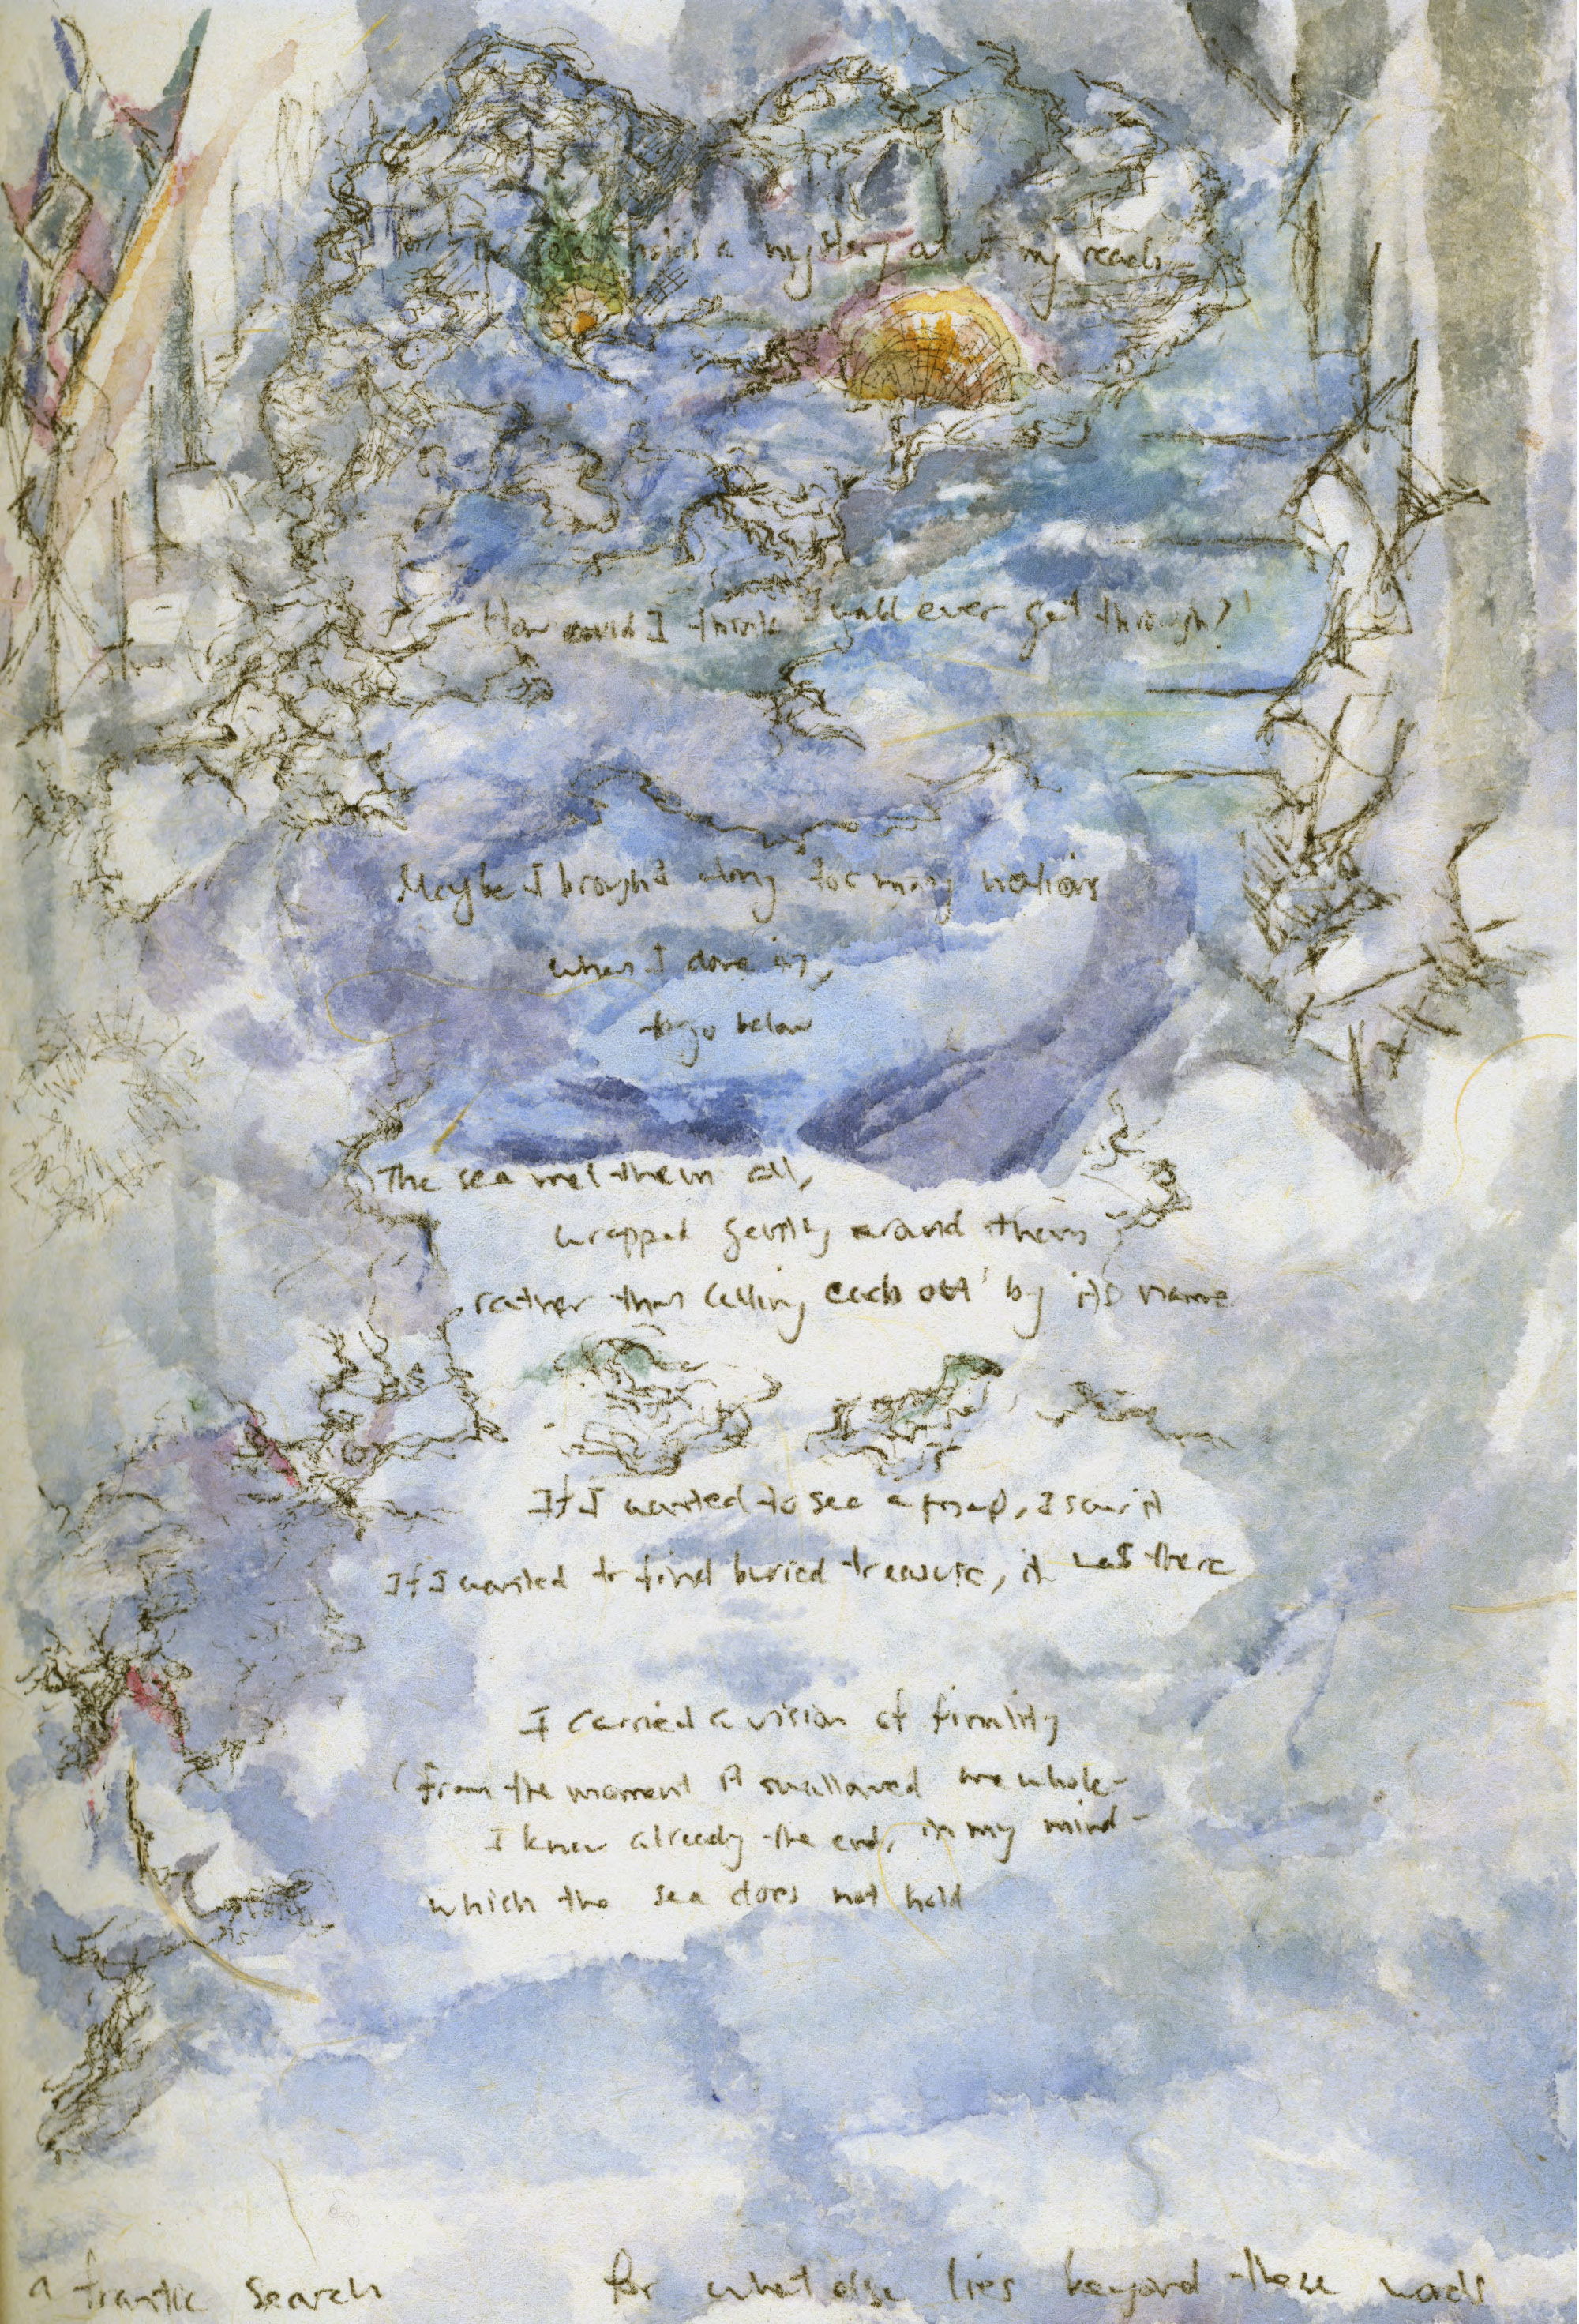 the sea holds a mystery out of my reach
How could I think I would ever get through?
Maybe I brought along too many notions
when I dove in,
to go below
The sea met them all,
wrapped gently around them
rather than calling each out by its name
If I wanted to see a map, I saw it
If I wanted to find buried treasure, it was there
I carried a vision of finality
(from the moment it swallowed me whole-
I knew already the end, in my mind-
which the sea does not hold
a frantic search for what else lies beyond these words